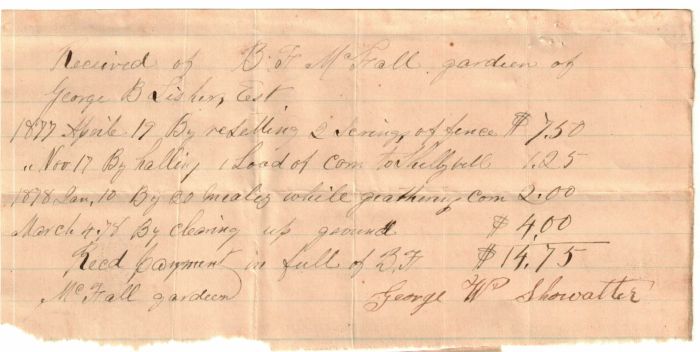 Received of B. F McFall gardeen of
George B Lisher, Est
1877 Aprile 17 By resetling 2 Scrings of fence $ 7.50
" Nov 17 By halling 1 Load of corn to Shellyvill 1.25
1878 Jan, 10 By 20 meales while geathring corn 2.00
March 4, 78 By clearing up ground $ 4.00
Recd payment in full of B. F $ 14.75
McFall gardeen George W Showalter